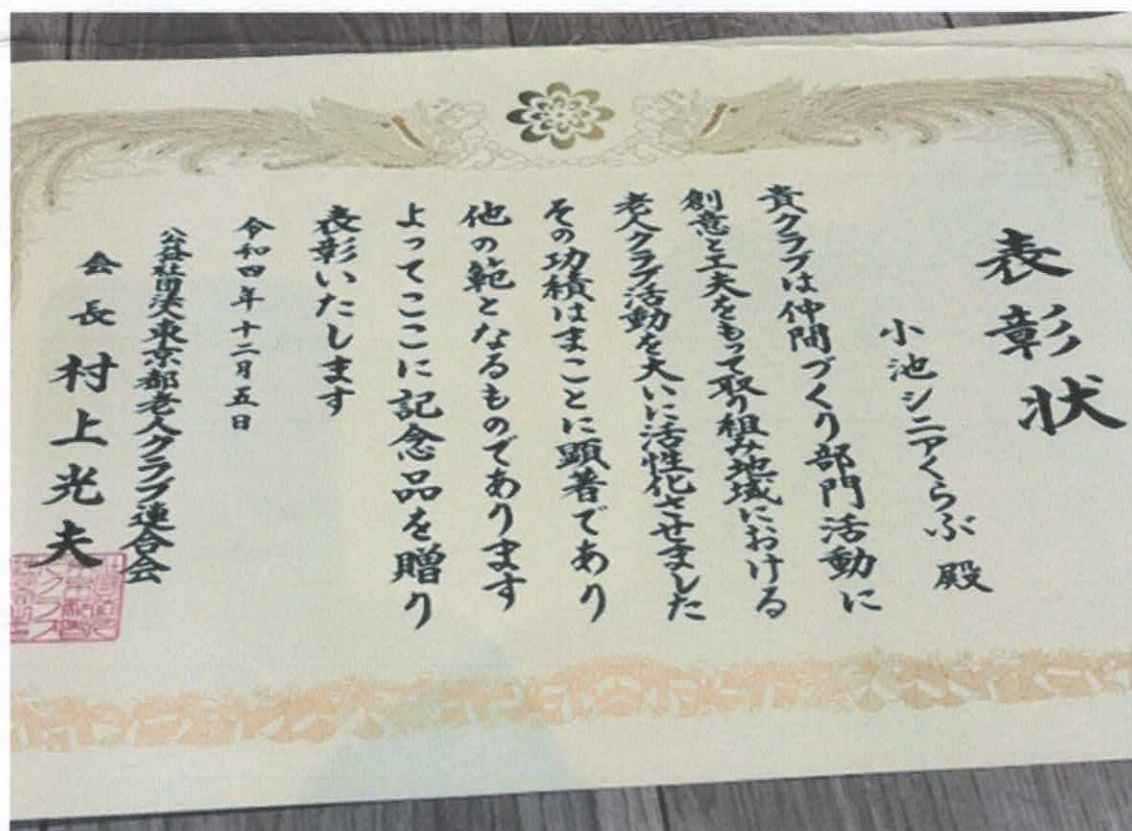 表彰状
小池シニアくらぶ 殿
貴クラブは仲間づくり部門活動に
創意と工夫をもって取り組み地域における
老人クラブ活動を大いに活性化させました
その功績はまことに顕著であり
他の範となるものであります
よってここに記念品を贈り
表彰いたします
令和四年十二月五日
公益社団法人東京都老人クラブ連合会
会長 村上光夫